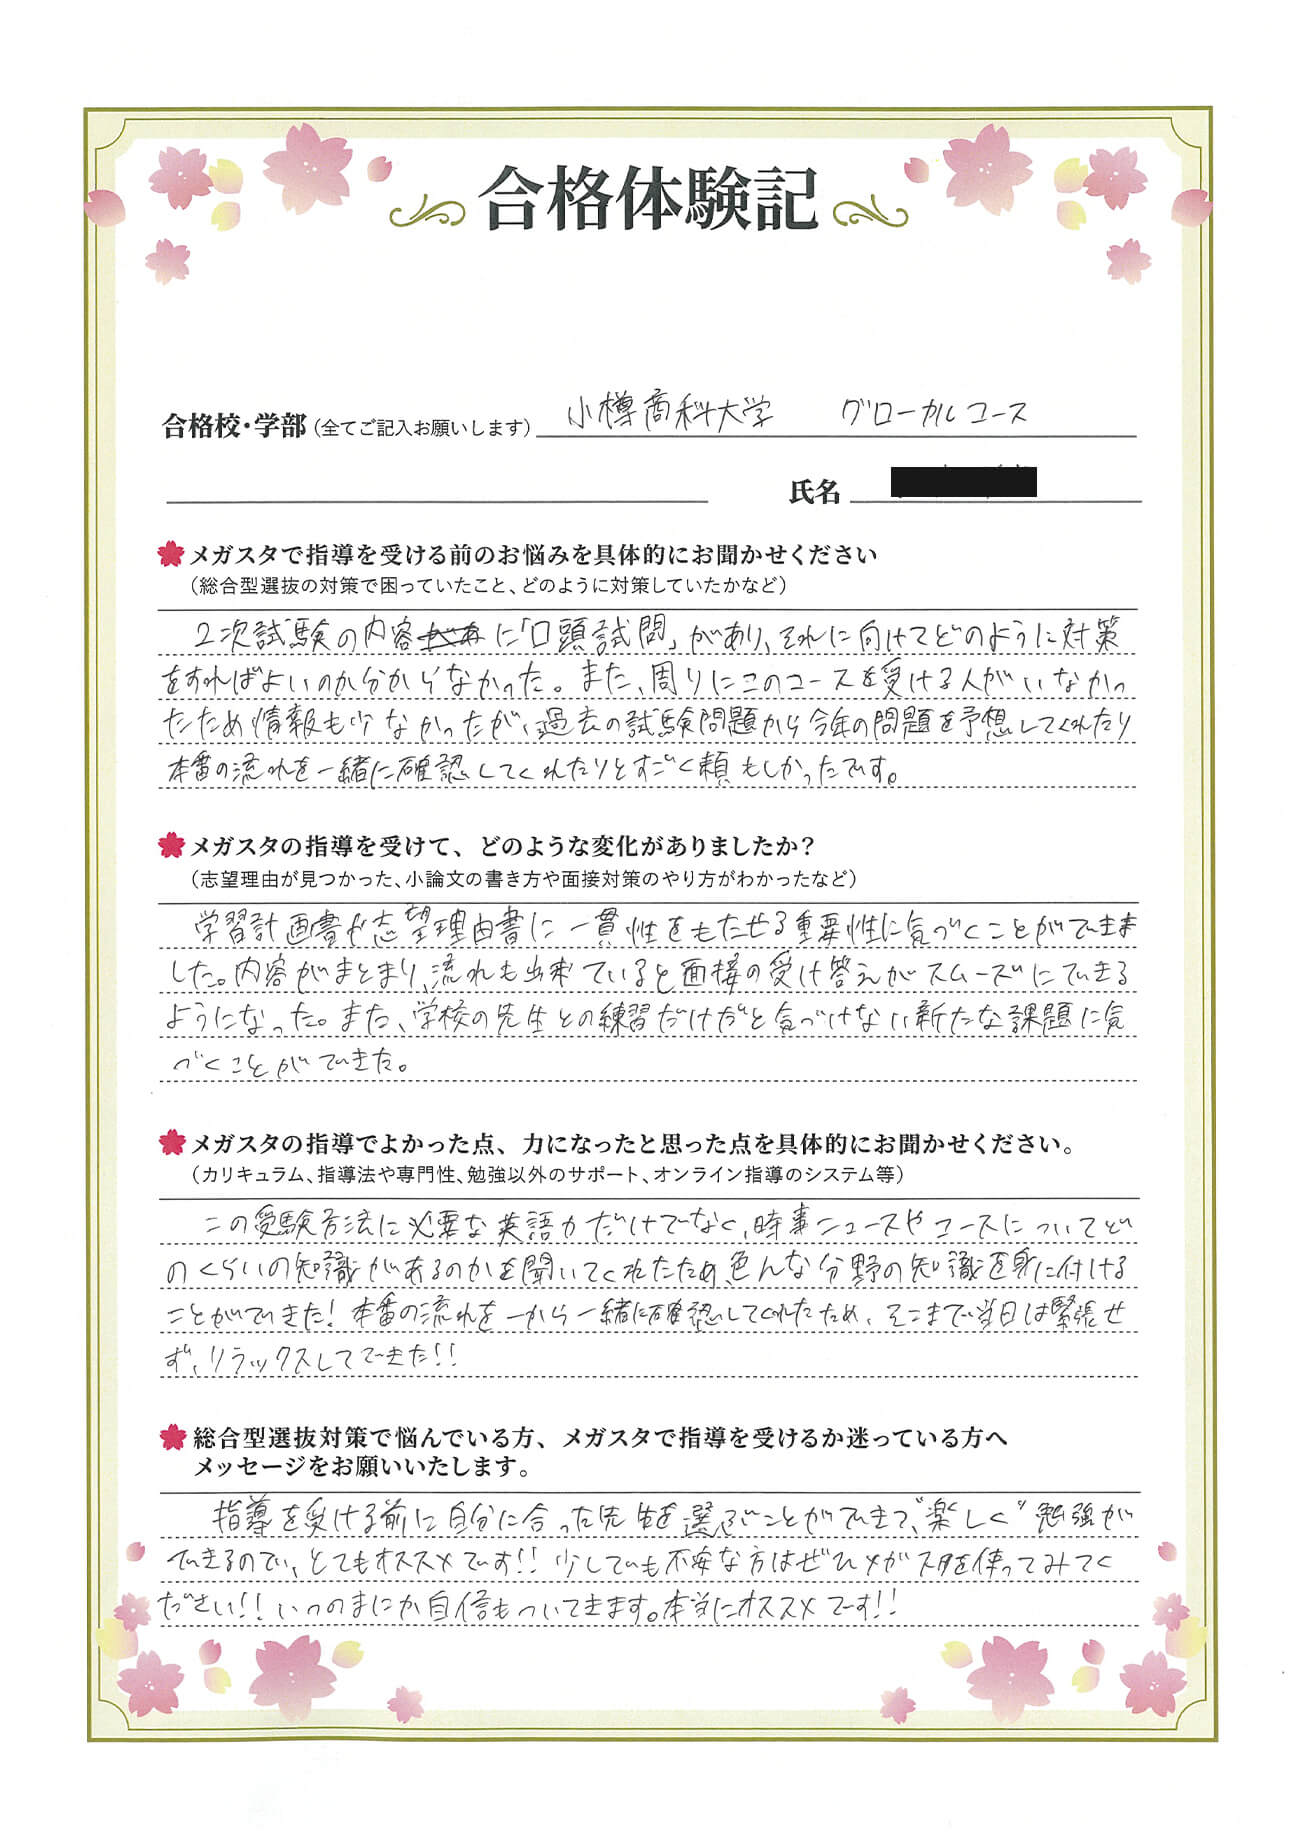 合格体験記
合格校・学部(全てご記入お願いします) 小樽商科大学 グローカルコース
氏名
メガスタで指導を受ける前のお悩みを具体的にお聞かせください
(総合型選抜の対策で困っていたこと、どのように対策していたかなど)
2次試験の内容に「口頭試問」があり、それに向けてどのように対策
をすればよいのか分からなかった。また、周りにこのコースを受ける人がいなかっ
たため情報も少なかったが、過去の試験問題から今年の問題を予想してくれたり
本番の流れを一緒に確認してくれたりとすごく頼もしかったです。
メガスタの指導を受けて、どのような変化がありましたか?
(志望理由が見つかった、小論文の書き方や面接対策のやり方がわかったなど)
学習計画書や志望理由書に一貫性をもたせる重要性に気づくことができま
した。内容がまとまり、流れも出来ていると面接の受け答えがスムーズにできる
ようになった。また、学校の先生との練習だけだと気づけない新たな課題に気
づくことができた。
メガスタの指導でよかった点、力になったと思った点を具体的にお聞かせください。
(カリキュラム、指導法や専門性、勉強以外のサポート、オンライン指導のシステム等)
この受験方法に必要な英語力だけでなく、時事ニュースやコースについてど
のくらいの知識があるのかを聞いてくれたため、色んな分野の知識を身に付ける
ことができました!本番の流れを一から一緒に確認してくれたため、そこまで当日は緊張せ
ず、リラックスしてできた!!
総合型選抜対策で悩んでいる方、メガスタで指導を受けるか迷っている方へ
メッセージをお願いいたします。
指導を受ける前に自分に合った先生を選ぶことができて、"楽しく"勉強が
できるので、とてもオススメです!!少しでも不安な方はぜひメガスタを使ってみてく
ださい!!いつのまにか自信もついてきます。本当にオススメです!!